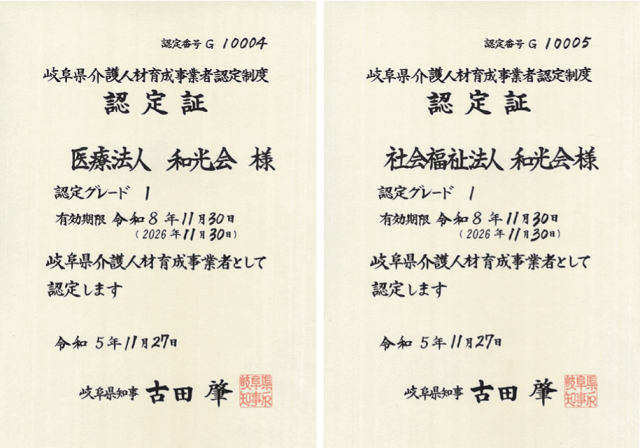 認定番号 G 10004
岐阜県介護人材育成事業者認定制度
認定証
医療法人 和光会 様
認定グレード 1
有効期限 令和 8 年 11月 30日
(2026 年 11月 30日)
岐阜県介護人材育成事業者として
認定します
令和 5年 11月 27日
岐阜県知事 古田 肇
岐阜県知事印
認定番号 G 10005
岐阜県介護人材育成事業者認定制度
認定証
社会福祉法人 和光会様
認定グレード 1
有効期限 令和 8 年 11月 30日
(2026 年 11月 30日)
岐阜県介護人材育成事業者として
認定します
令和 5年 11月 27日
岐阜県知事 古田 肇
岐阜県知事印